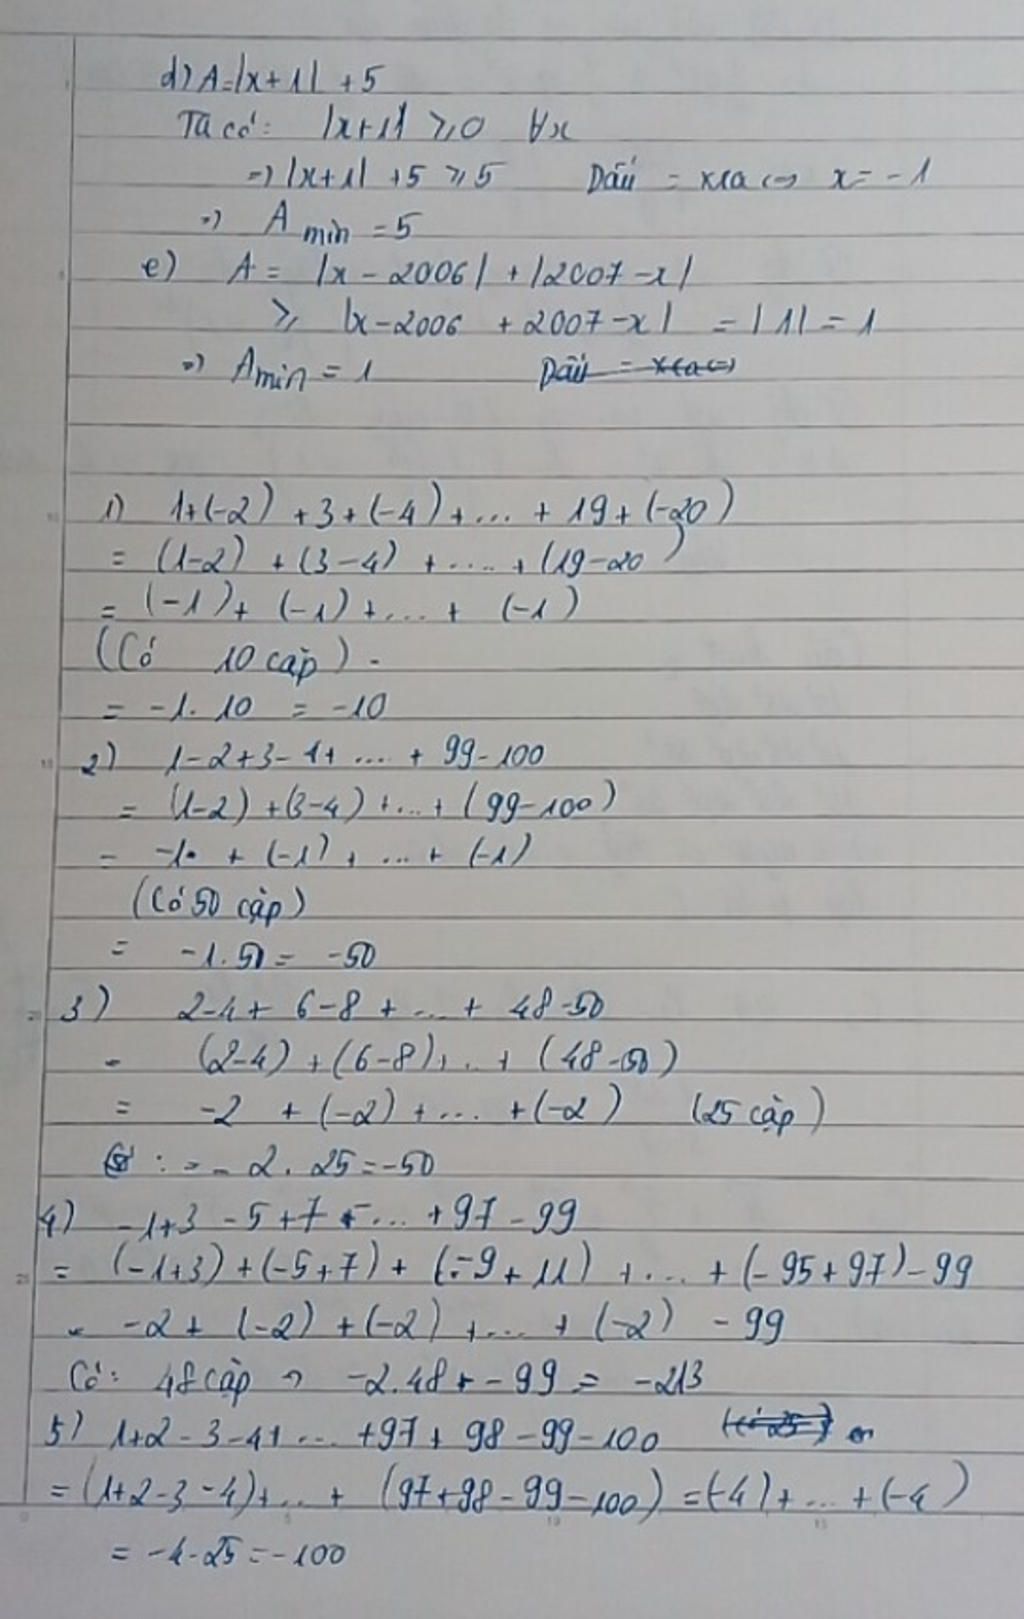 d) A=|x+1| +5
Ta có: |x+1| ≥0 ∀x
=> |x+1| +5 ≥5 Dấu = xra <=> x= -1
=> A min =5
e) A= |x - 2006| + |2007-x|
≥ |x-2006 +2007-x| = |1| = 1
=> Amin = 1 Dấu = xra <=>
1) 1+(-2) +3+(-4)+... + 19+(-20)
= (1-2) +(3-4) +....+(19-20)
= (-1)+ (-1)+...+ (-1)
(Có 10 cặp) -
= -1. 10 = -10
2) 1-2+3-4+ .... + 99-100
= (1-2) +(3-4) +...+ (99-100)
= -1 + (-1) + ... + (-1)
(Có 50 cặp)
= -1.50 = -50
3) 2-4+ 6-8 + ... + 48-50
= (2-4) +(6-8)+..+ (48-50)
= -2 +(-2)+... +(-2) (25 cặp)
: = - 2. 25=-50
4) -1+3 -5+7 -... +97-99
= (-1+3)+(-5+7)+ (-9+11) +... +(-95+97)-99
= -2+ (-2) +(-2) +...+ (-2) - 99
Có: 48 cặp => -2.48+ -99 = -213
5) 1+2-3-4+ ... +97+ 98-99-100
=(1+2-3-4)+..+ (97+98-99-100) =(-4)+...+(-4)
= -4.25=-100